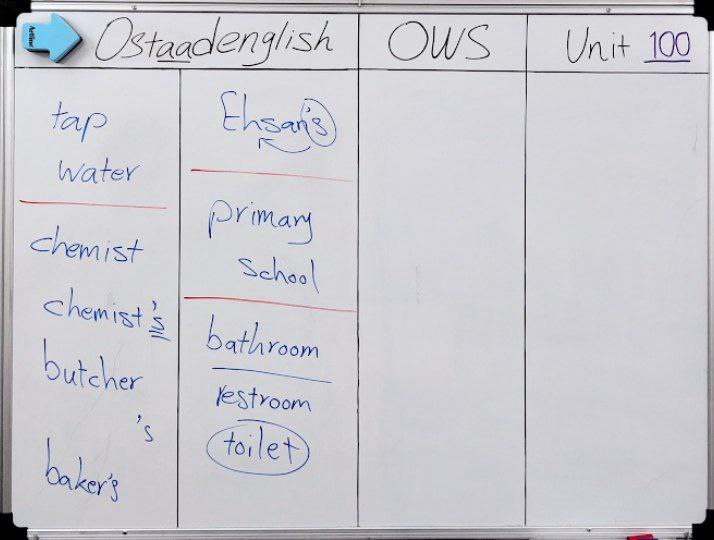 Ostaadenglish
OWS
Unit 100
tap
water
chemist
chemist's
butcher
's
baker's
Ehsan's
primary
school
bathroom
restroom
toilet